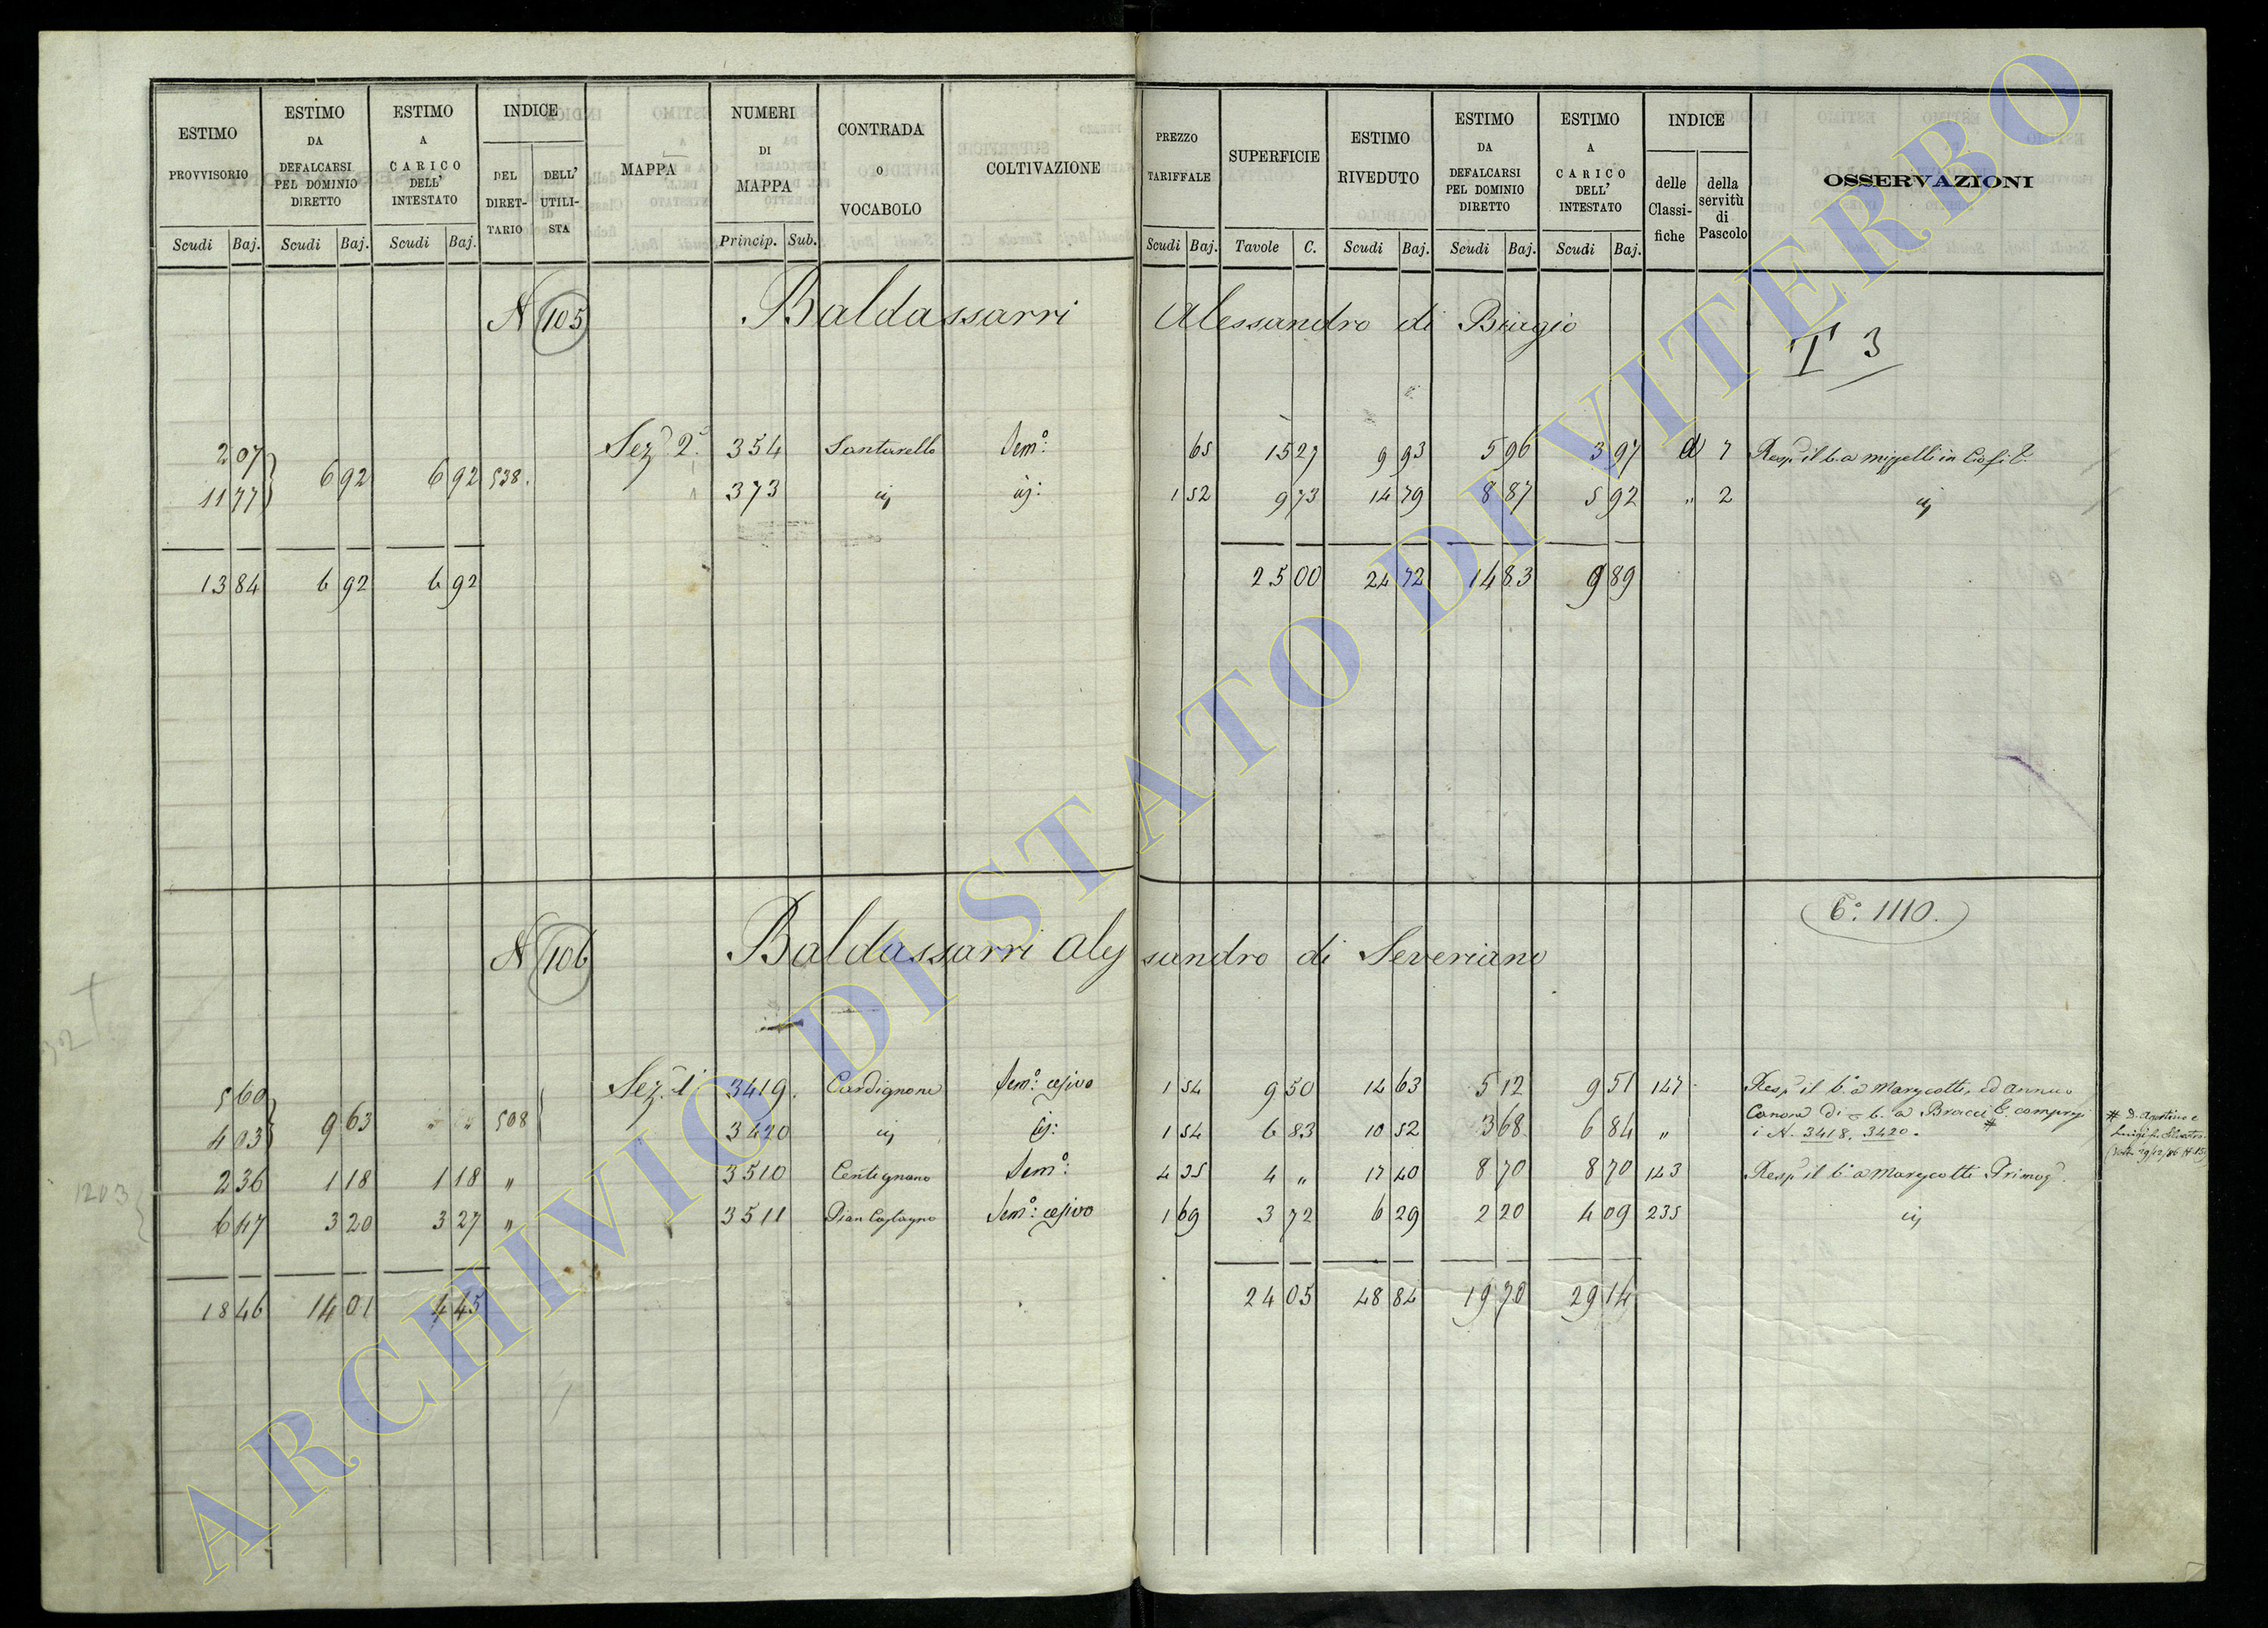 ESTIMO PROVVISORIO Scudi Baj.
ESTIMO DA DEFALCARSI PEL DOMINIO DIRETTO Scudi Baj.
ESTIMO A CARICO DELL' INTESTATO Scudi Baj.
INDICE DEL DIRET-TARIO DELL' UTILI-STA
MAPPA
NUMERI DI MAPPA Princip. Sub.
CONTRADA O VOCABOLO
COLTIVAZIONE
PREZZO TARIFFALE Scudi Baj.
SUPERFICIE Tavole C.
ESTIMO RIVEDUTO Scudi Baj.
ESTIMO DA DEFALCARSI PEL DOMINIO DIRETTO Scudi Baj.
ESTIMO A CARICO DELL' INTESTATO Scudi Baj.
INDICE delle Classi-fiche della servitù di Pascolo
OSSERVAZIONI
N 105 Baldassarri Alessandro di Biagio
T 3
2 07 6 92 6 92 538. Sez. 2. 354 Santarello Sem.o: 65 15 27 9 93 5 96 3 97 d 7
11 77 373 iij iij: 1 52 9 73 14 79 8 87 5 92 " 2 iij
13 84 6 92 6 92 25 00 24 72 14 83 9 89
T.o 1110.
N 106 Baldassarri Alessandro di Severiano
5 60 9 63 " " 508 Sez. 1a 3419. Cardignone Sem.o: cesivo 1 54 9 50 14 63 5 12 9 51 147
4 03 3420 iij iij: 1 54 6 83 10 52 3 68 6 84 " i N. 3418. 3420.
2 36 1 18 1 18 " 3510 Centignano Sem.o: 4 35 4 " 17 40 8 70 8 70 143
6 47 3 20 3 27 " 3511 Pian Castagno Sem.o: cesivo 1 69 3 72 6 29 2 20 4 09 235 iij
18 46 14 01 4 45 24 05 48 84 19 70 29 14
1203
ARCHIVIO DI STATO DI VITERBO